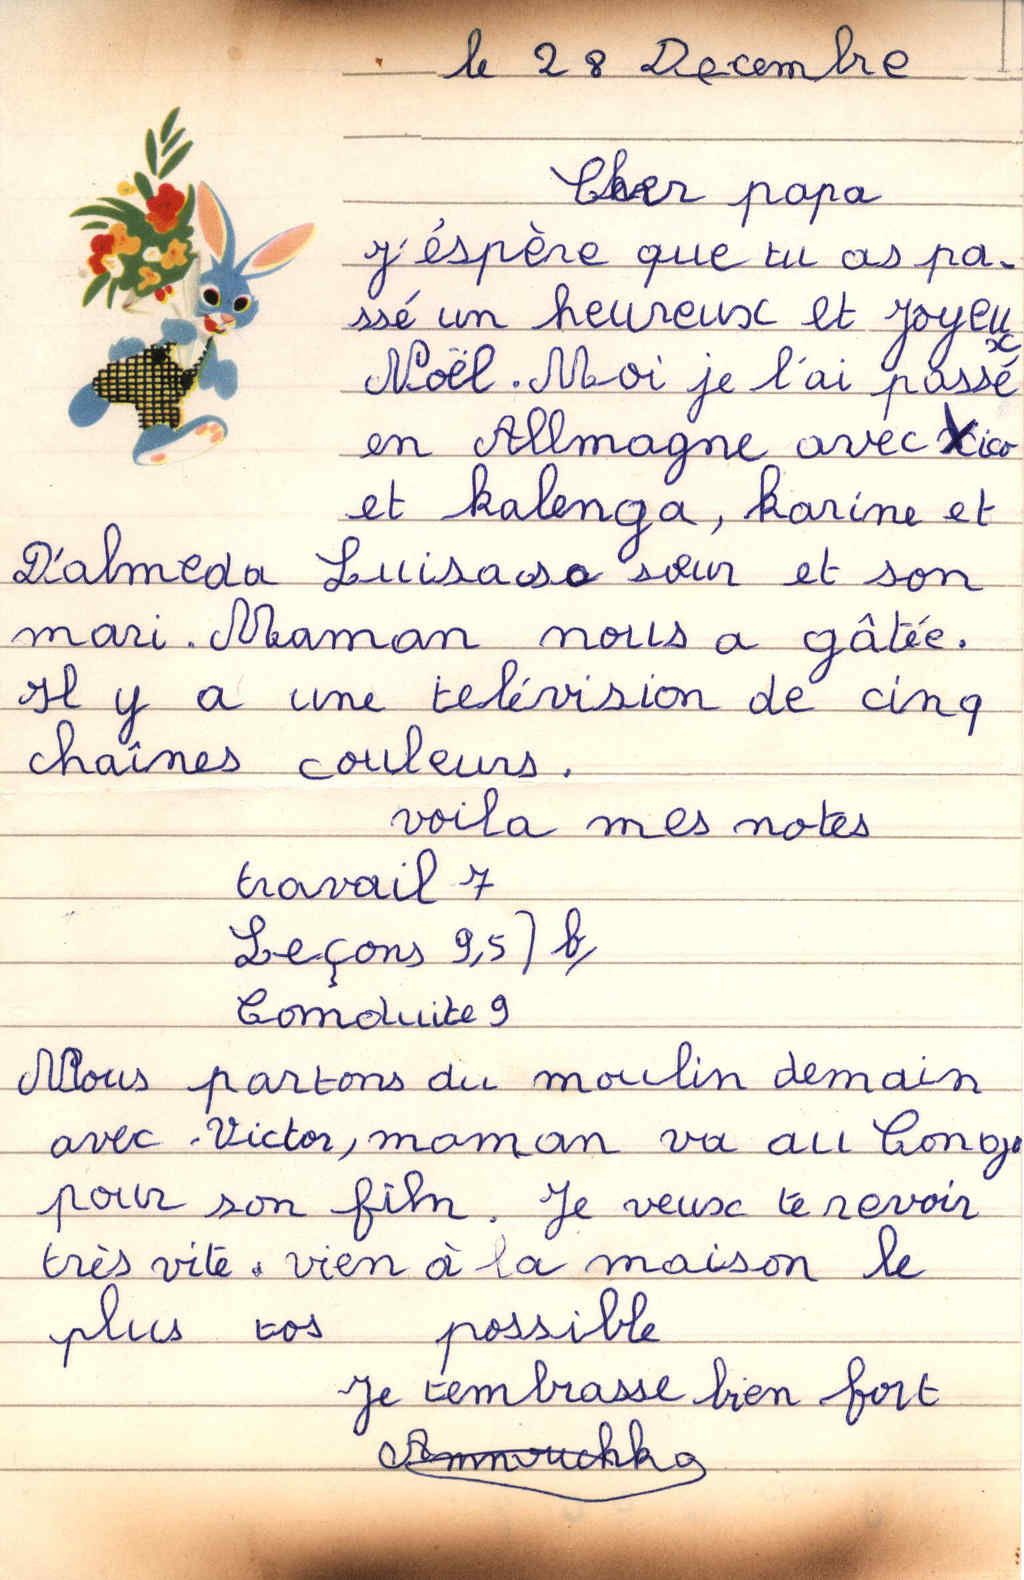 le 28 Decembre
Cher papa
j'éspère que tu as pa-
ssé un heureux et joyeux
Noël. Moi je l'ai passé
en Allmagne avec Xico
et kalenga, karine et
D'almeda Luisa sa sœur et son
mari. Maman nous a gâtée.
Il y a une telévision de cinq
chaînes couleurs.
voila mes notes
travail 7
Leçons 9,5
Conduite 9
Nous partons du moulin demain
avec Victor, maman va au Congo
pour son film. Je veux te revoir
très vite. vien à la maison le
plus tos possible
Je tembrasse bien fort
Annouchka